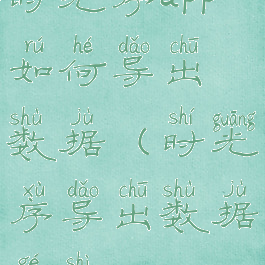 的光序app
rú hé dǎo chū
如何导出
shù jù shí guāng
数据（时光
xù dǎo chū shù jù
序导出数据
gé shì